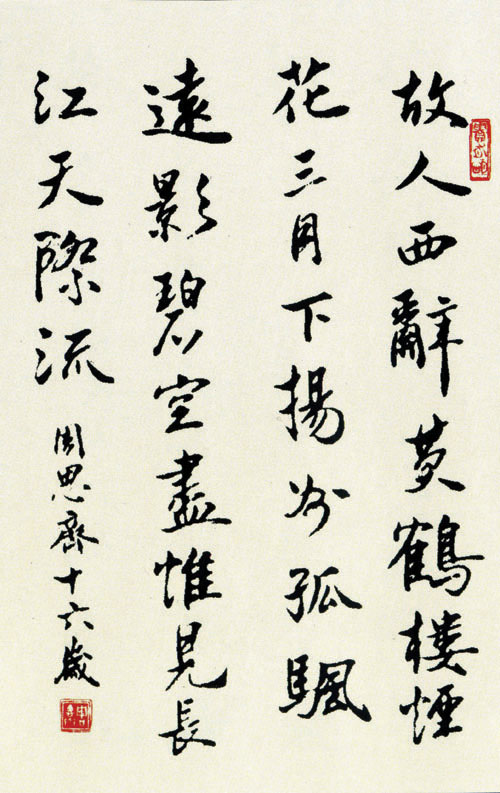 故人西辭黄鶴樓煙
花三月下揚州孤颿
遠影碧空盡惟見長
江天際流
周思齋十六歲